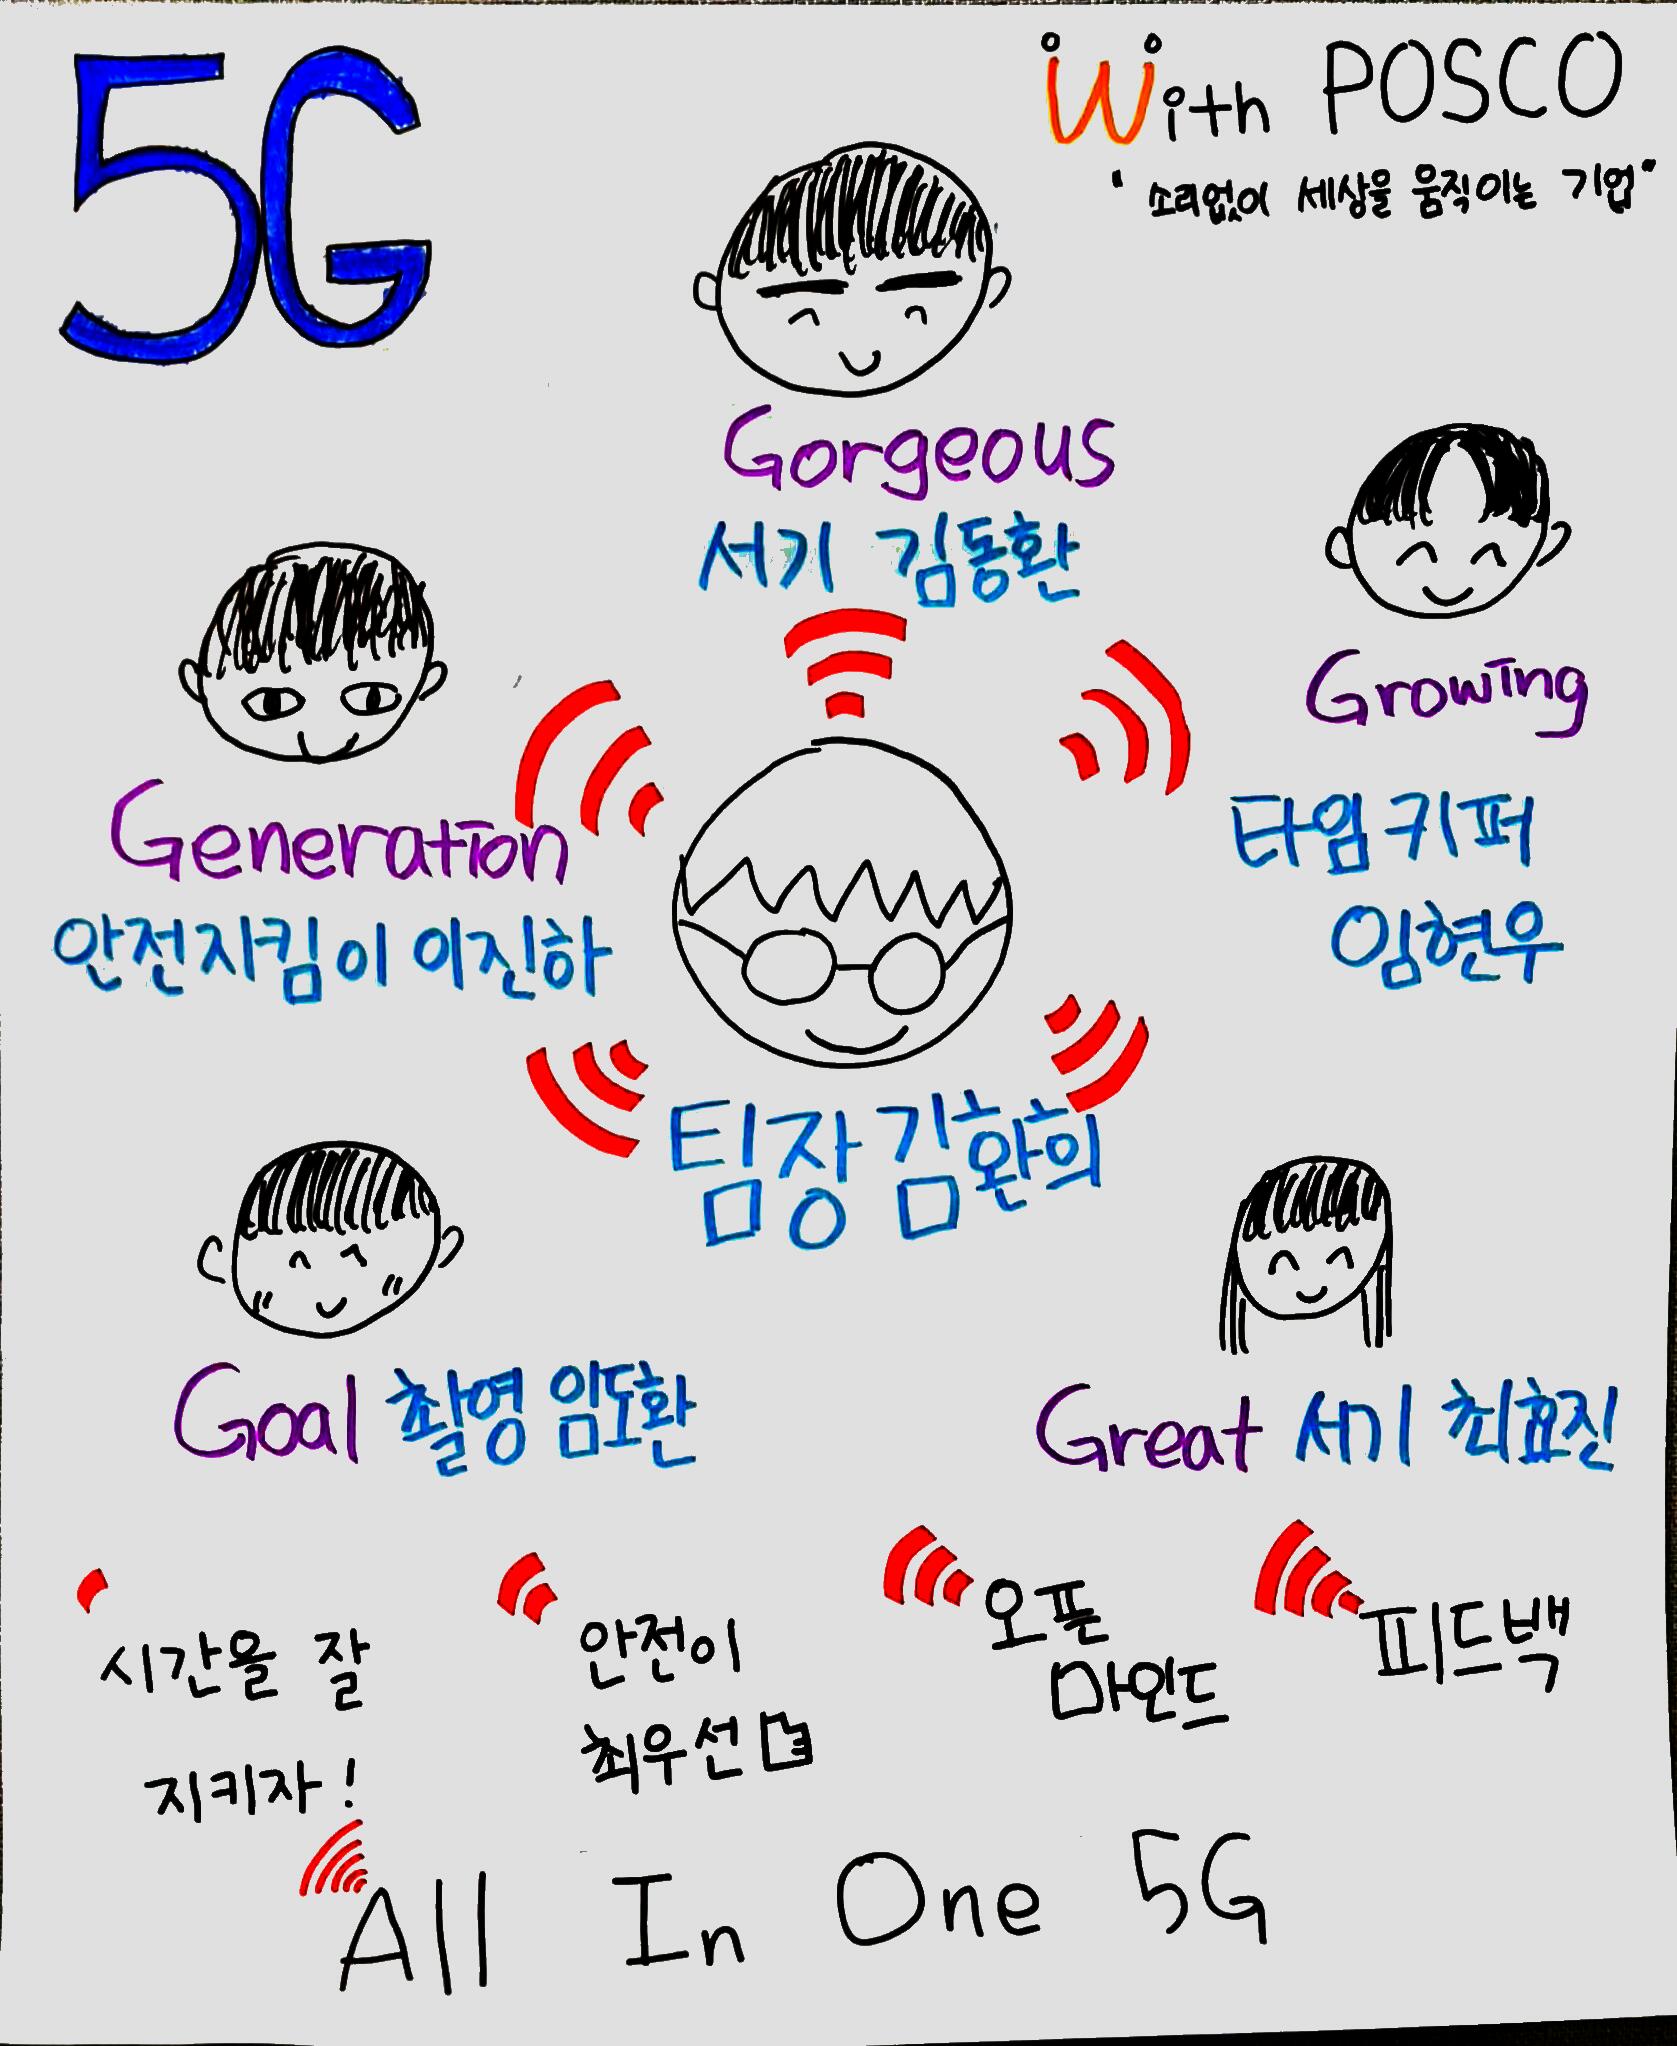 5G
With POSCO
"소리없이 세상을 움직이는 기업"
Gorgeous
서기 김동환
Growing
타임키퍼
임현우
Generation
안전지킴이 이진하
팀장 김환희
Goal 촬영 임도환
Great 서기 최효진
시간을 잘
지키자!
안전이
최우선
오픈
마인드
피드백
All In One 5G